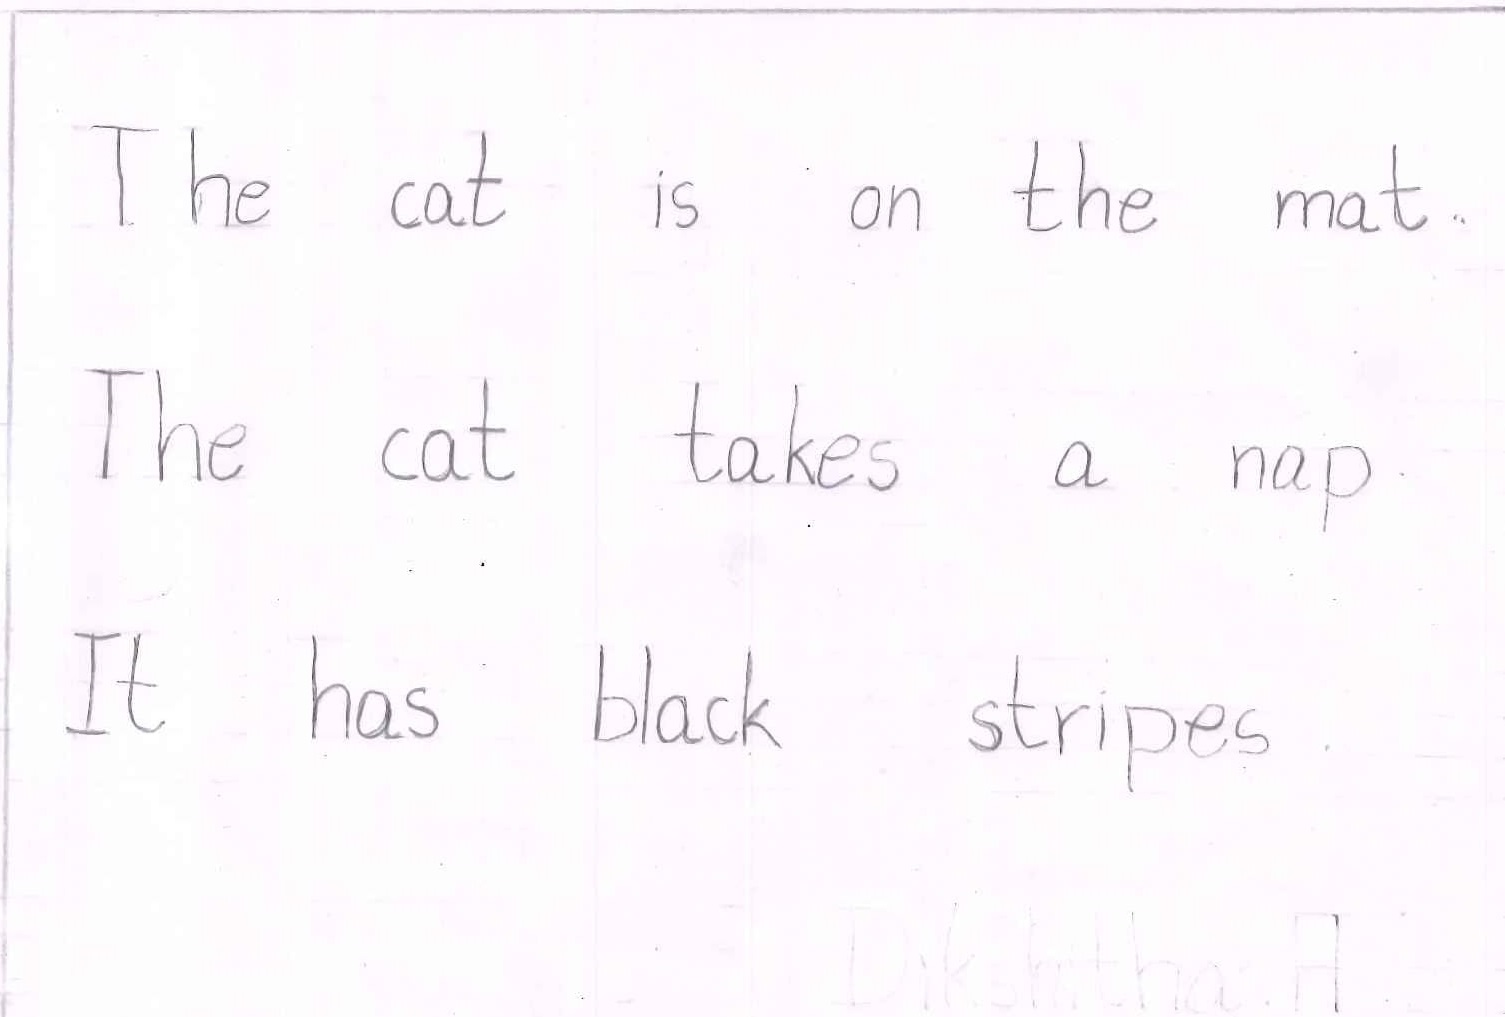 The cat is on the mat.
The cat takes a nap.
It has black stripes.